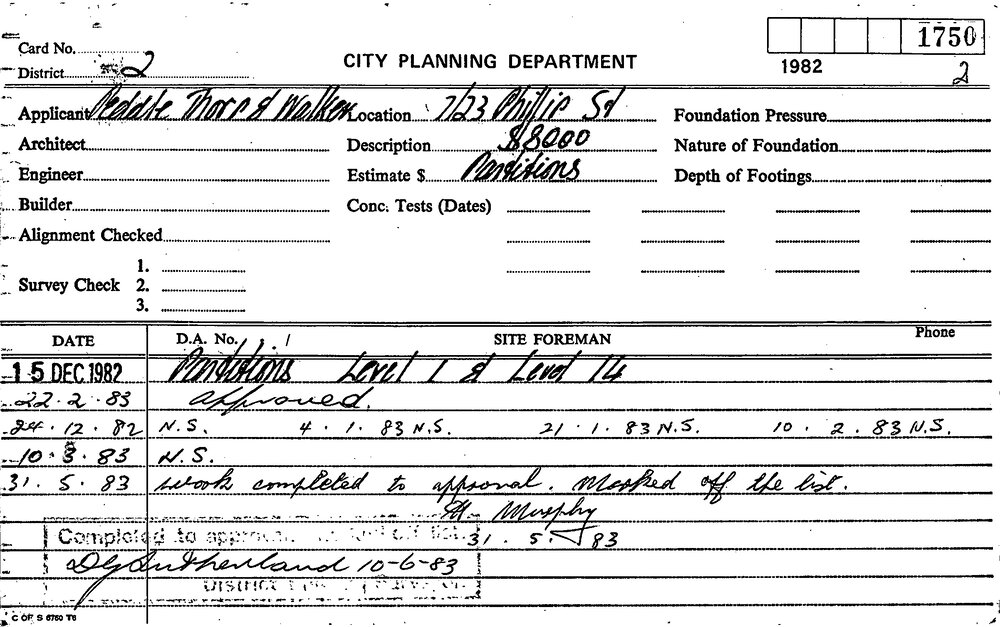 1750
Card No.
1982
District 2
CITY PLANNING DEPARTMENT
2
Applicant Peddle Thorp & Walker Location 7/23 Phillip St Foundation Pressure
Architect Description $8000 Nature of Foundation
Engineer Estimate $ Partitions Depth of Footings
Builder Conc. Tests (Dates)
Alignment Checked
1.
Survey Check 2.
3.
DATE D.A. No. SITE FOREMAN Phone
15 DEC 1982 Partitions Level 1 & Level 14
22.2.83 approved.
24.12.82 N.S. 4.1.83 N.S. 21.1.83 N.S. 10.2.83 N.S.
10.3.83 N.S.
31.5.83 work completed to approval. Marked off the list.
Murphy
Completed to approval off list. 31.5.83
DG Sutherland 10-6-83
DISTRICT
C OF S 6750 T6